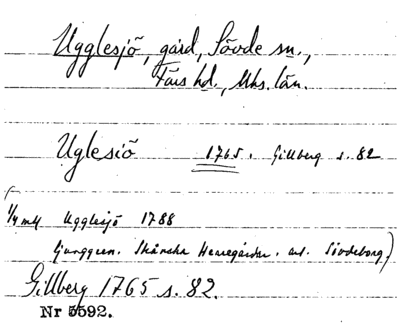 Ugglesjö, gård, Sövde sn.,
Färs hd., Mhs. län.
Uglesiö 1765. Gillberg s. 82
(1/4 mtl Ugglesjö 1788
Ljunggren. Skånska Herregårdar. art. Sövdeborg.)
Gillberg 1765 s. 82.
Nr 5592.